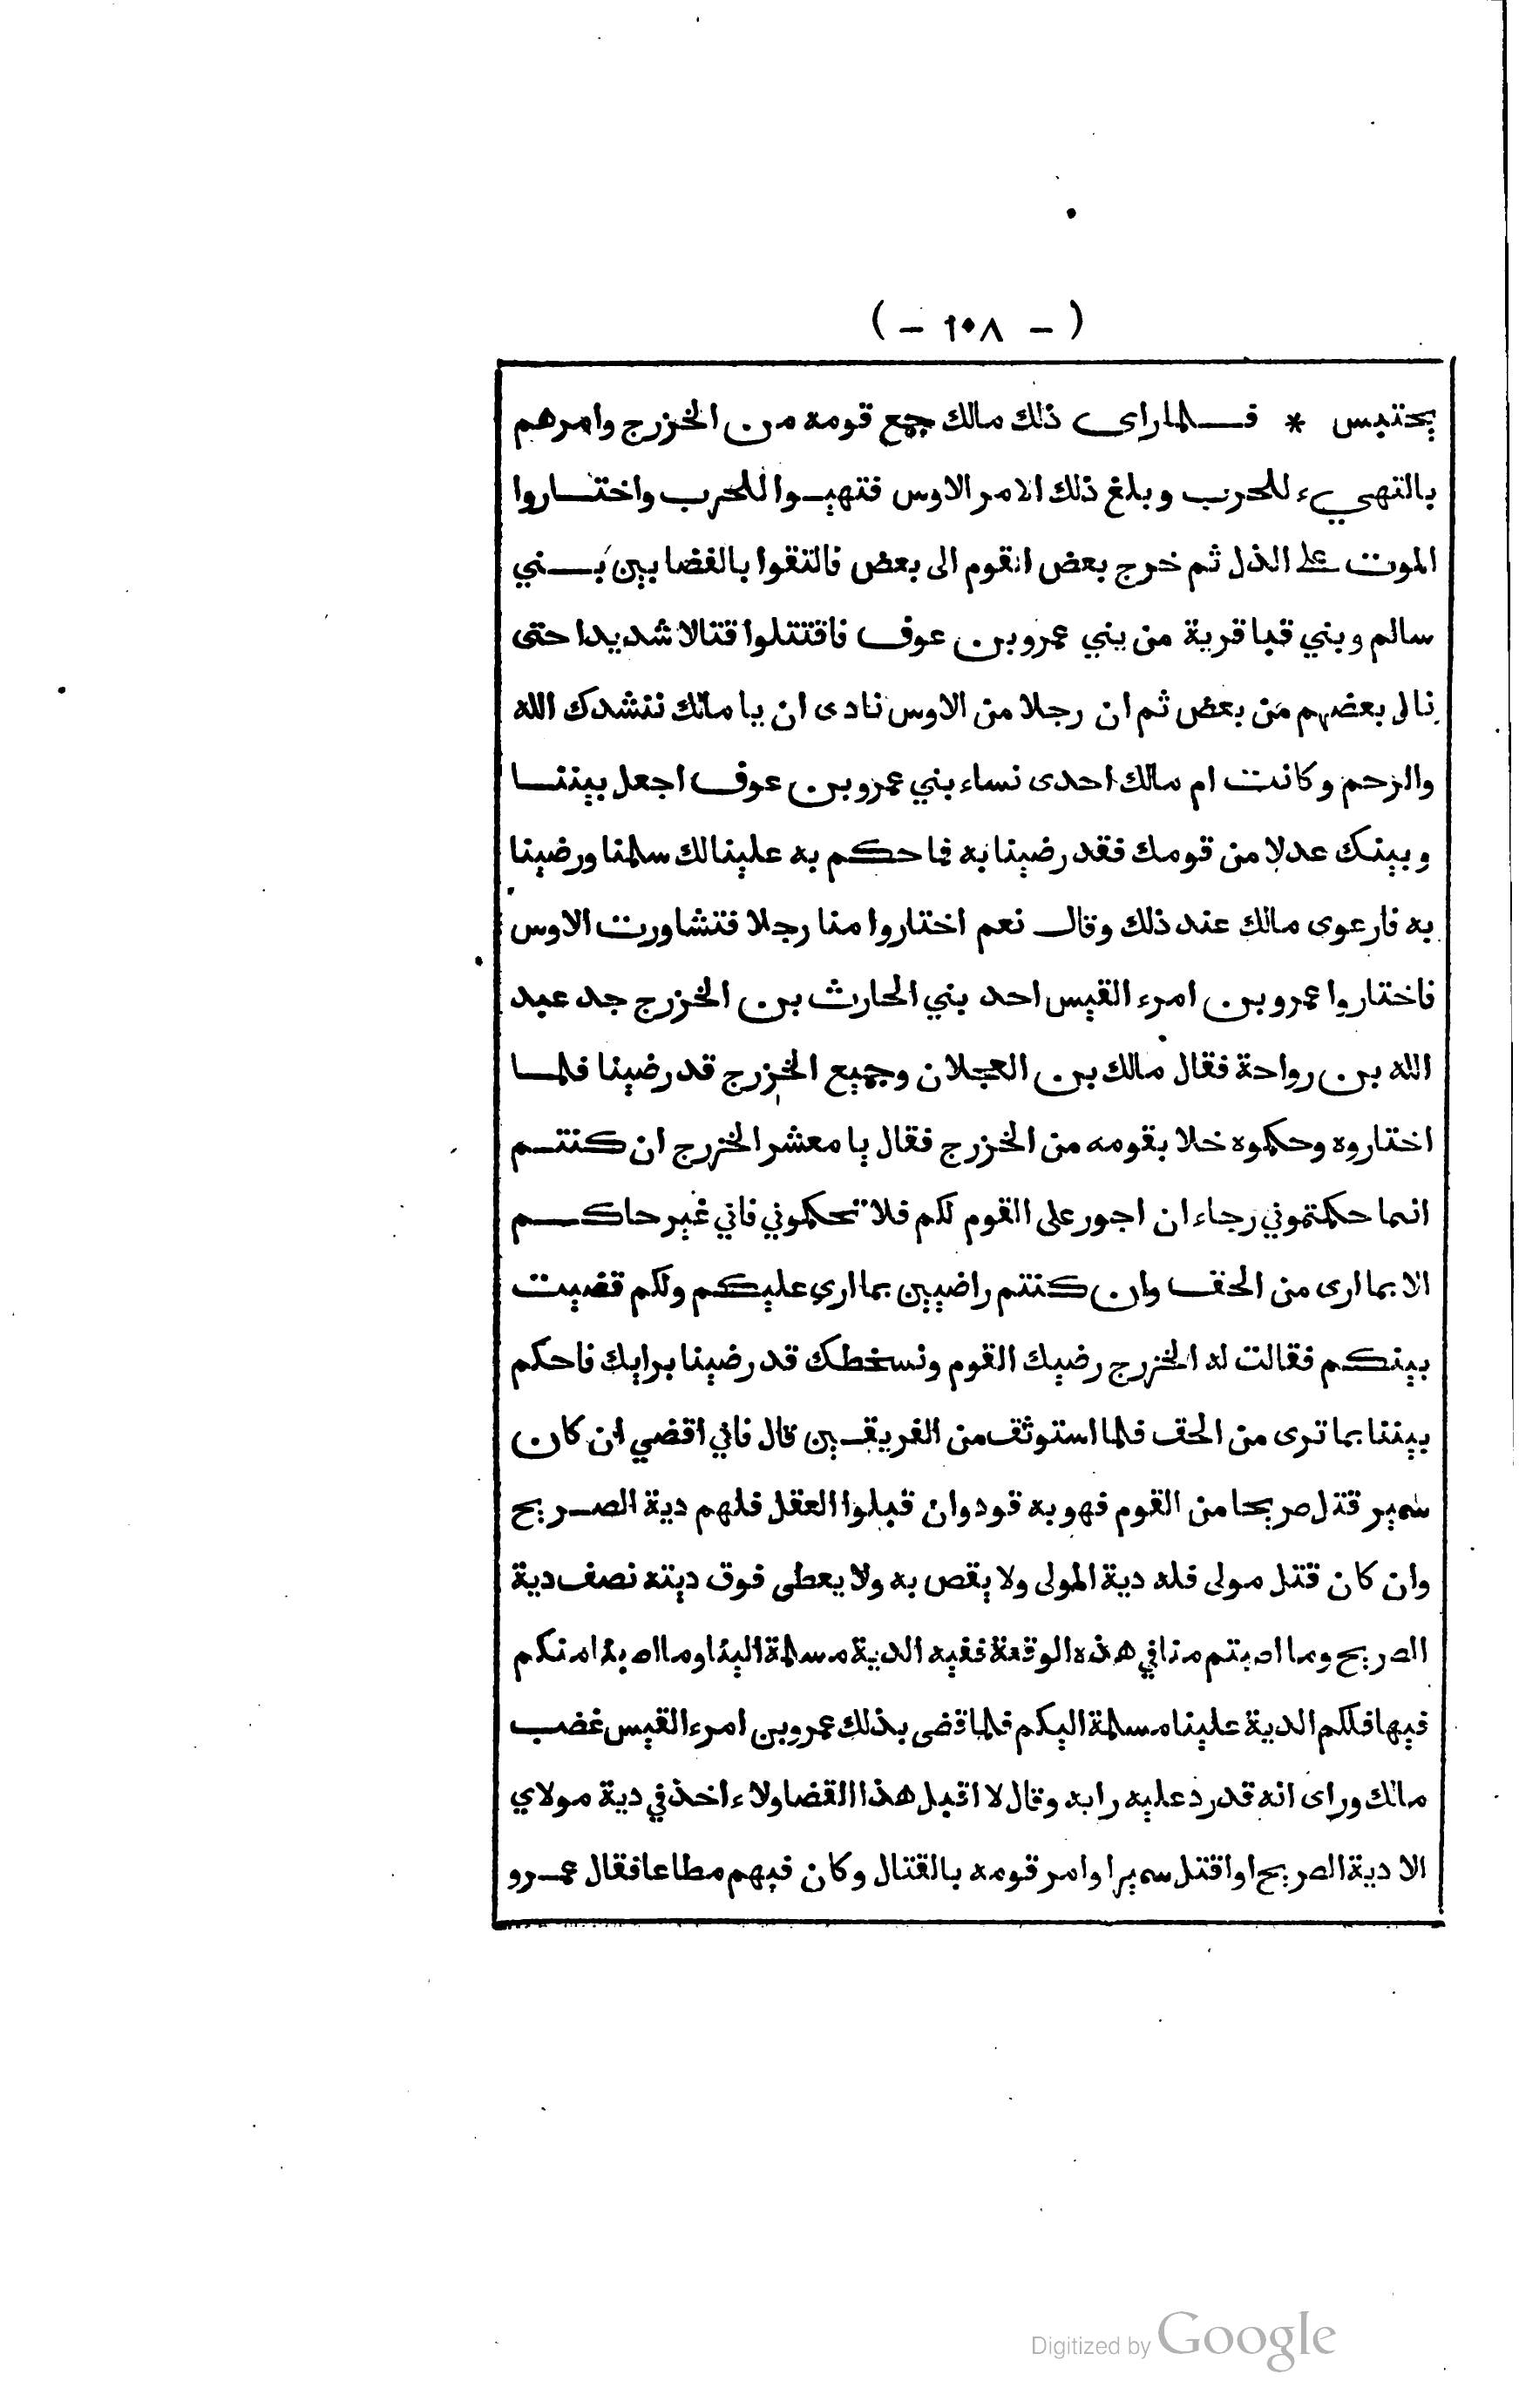 ( - ١٠٨ - )
يحتبس * فلما راى ذلك مالك جمع قومه من الخزرج وامرهم
بالتهيىء للحرب وبلغ ذلك الامر الاوس فتهيوا للحرب واختاروا
الموت على الذل ثم خرج بعض القوم الى بعض فالتقوا بالفضا بين بني
سالم وبني قبا قرية من بني عمرو بن عوف فاقتتلوا قتالا شديدا حتى
نال بعضهم من بعض ثم ان رجلا من الاوس نادى ان يا مالك ننشدك الله
والرحم وكانت ام مالك احدى نساء بني عمرو بن عوف اجعل بيننا
وبينك عدلا من قومك فقد رضينا به فما حكم به علينا لك سلمنا ورضينا
به فارعوى مالك عند ذلك وقال نعم اختاروا منا رجلا فتشاورت الاوس
فاختاروا عمرو بن امرء القيس احد بني الحارث بن الخزرج جد عبد
الله بن رواحة فقال مالك بن العجلان وجميع الخزرج قد رضينا فلما
اختاروه وحكموه خلا بقومه من الخزرج فقال يا معشر الخزرج ان كنتم
انما حكمتموني رجاء ان اجور على القوم لكم فلا تحكموني فاني غير حاكم
الا بما ارى من الحق وان كنتم راضيين بما ارى عليكم ولكم قضيت
بينكم فقالت له الخزرج رضيك القوم ونسخطك قد رضينا برايك فاحكم
بيننا بما ترى من الحق فلما استوثق من الفريقين قال فاني اقضي ان كان
سمير قتل صريحا من القوم فهو به قود وان قبلوا العقل فلهم دية الصريح
وان كان قتل مولى فله دية المولى ولا يقص به ولا يعطى فوق ديته نصف دية
الصريح وما اصبتم منا في هذه الوقعة ففيه الدية مسلمة الينا وما اصبنا منكم
فيها فلكم الدية علينا مسلمة اليكم فلما قضى بذلك عمرو بن امرء القيس غضب
مالك وراى انه قد رد عليه رايه وقال لا اقبل هذا القضا ولا ءاخذ في دية مولاي
الا دية الصريح او اقتل سميرا وامر قومه بالقتال وكان فيهم مطاعا فقال عمرو
Digitized by Google